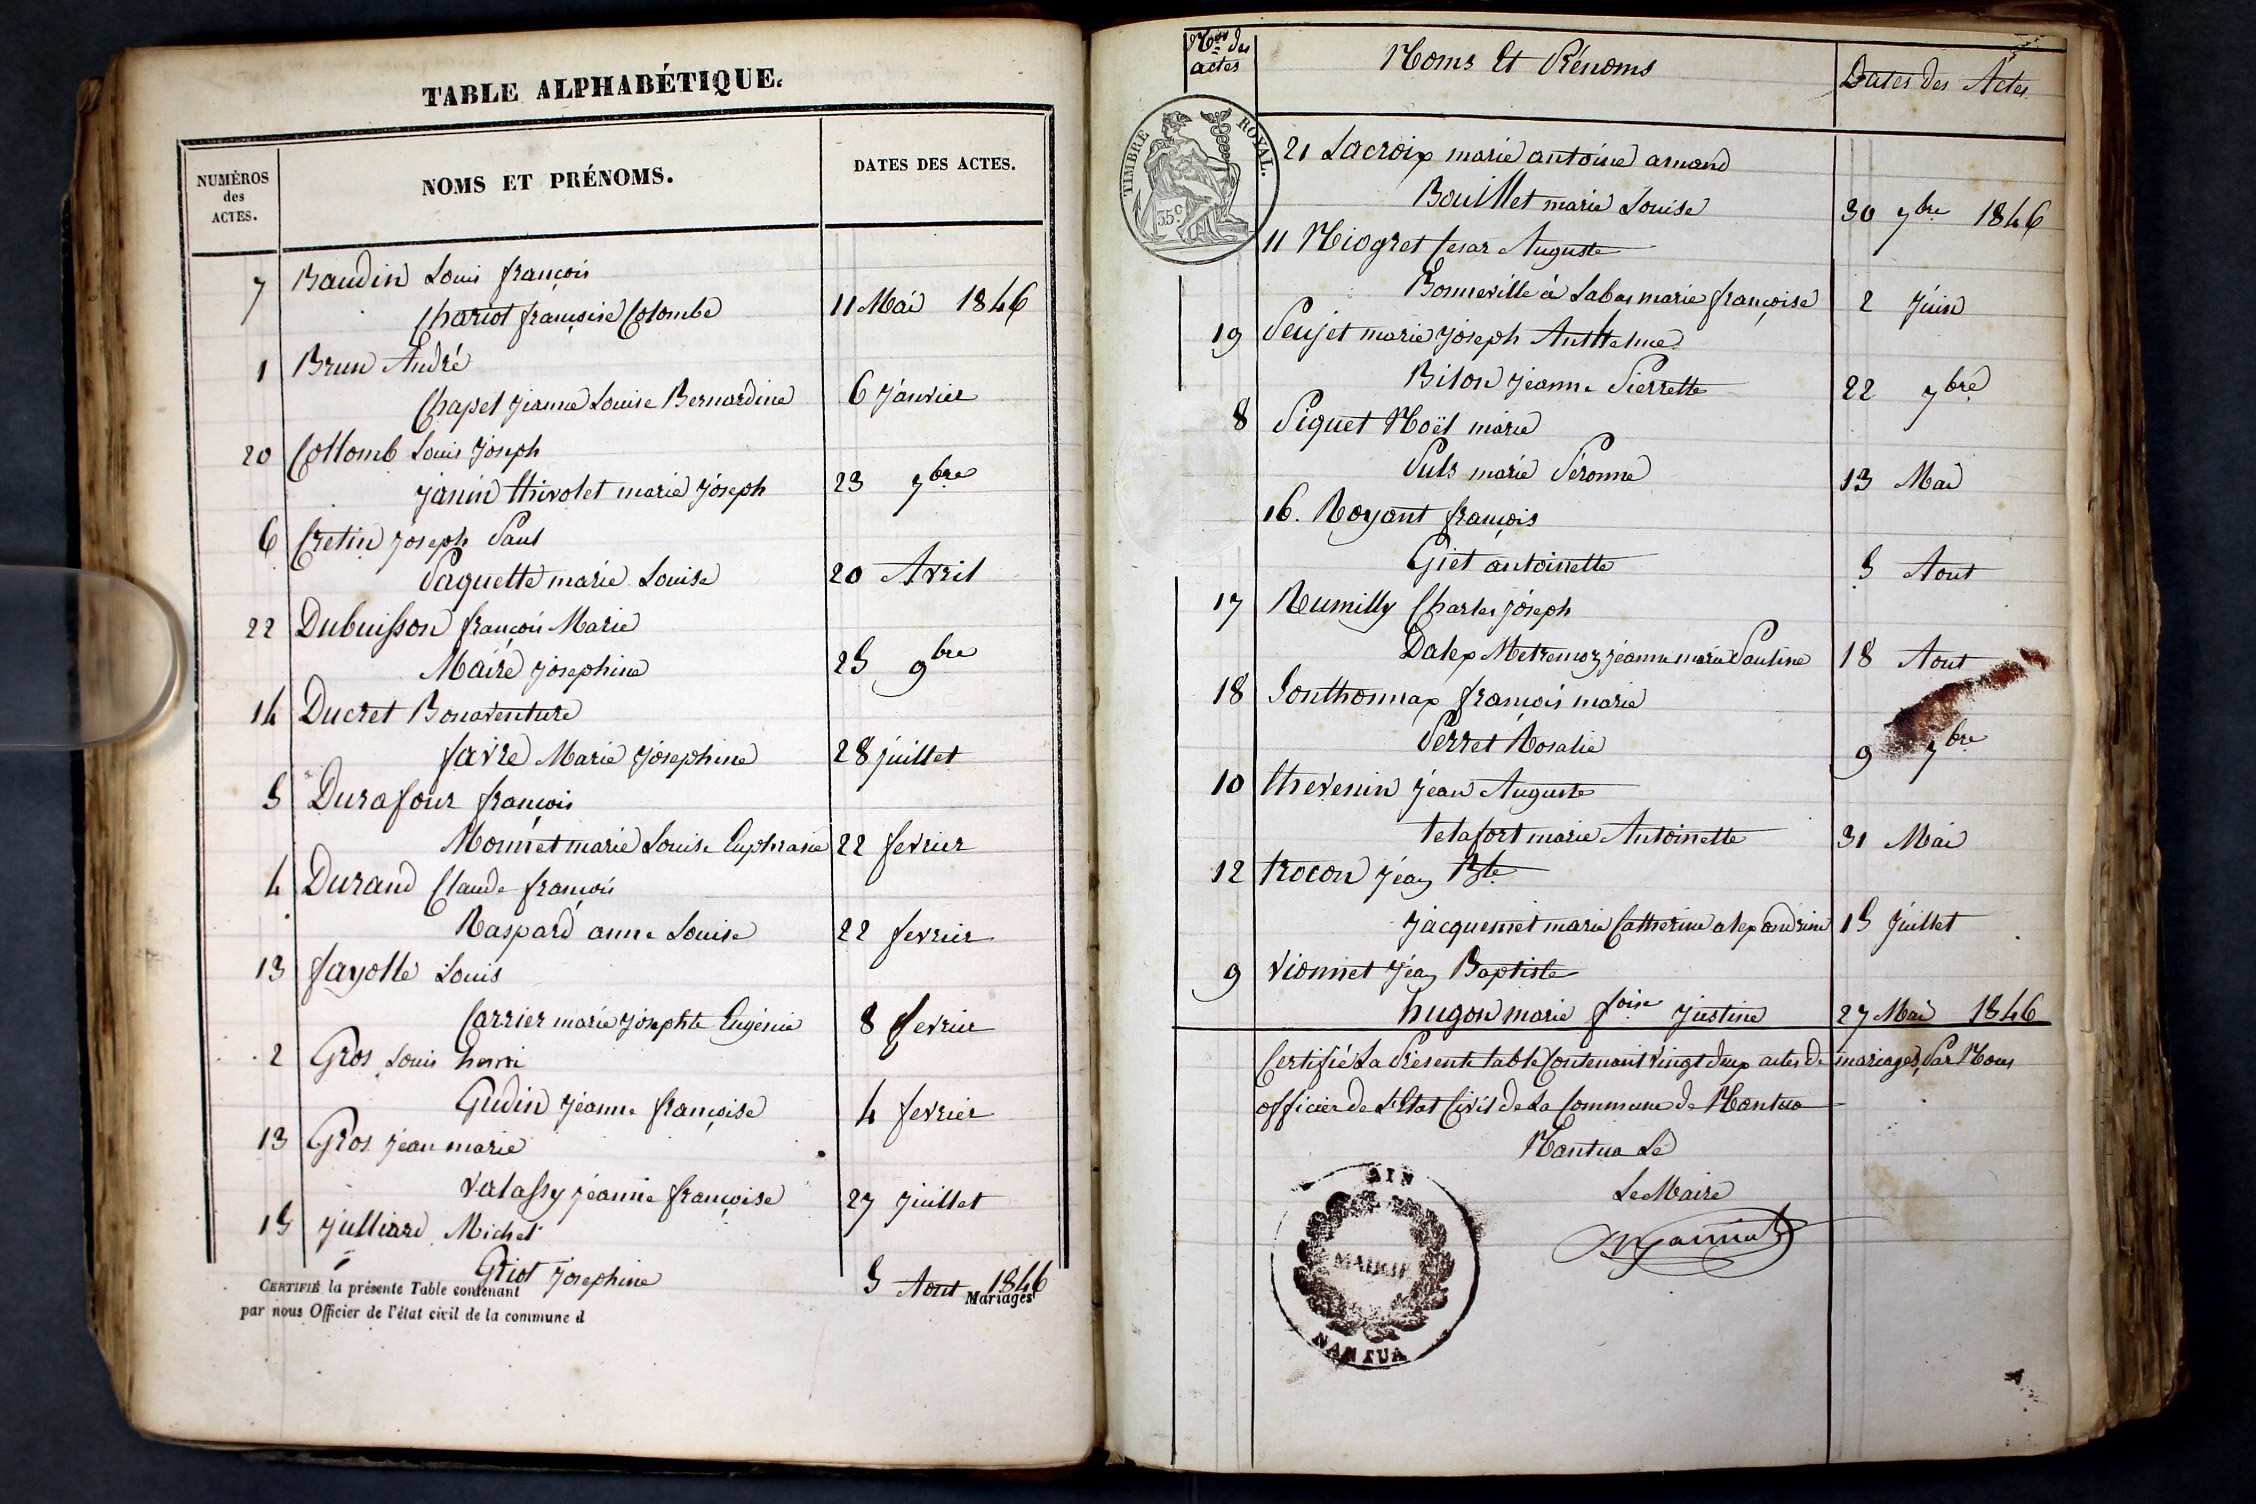 TABLE ALPHABÉTIQUE.
NUMÉROS des ACTES.
NOMS ET PRÉNOMS.
DATES DES ACTES.
7 Baudin Louis françois
Chariot françoise Colombe 11 Mai 1846
1 Brun André
Chapel jeanne Louise Bernardine 6 janvier
20 Collomb Louis joseph
janin thivolet marie joseph 23 7bre
6 Cretin joseph Paul
Paquette marie Louise 20 Avril
22 Dubuisson françois Marie
Maire josephine 25 9bre
14 Ducret Bonaventure
favre Marie josephine 28 juillet
5 Durafour françois
Monnet marie Louise Euphrasie 22 fevrier
4 Durand Claude françois
Raspard anne Louise 22 fevrier
13 fayolle Louis
Carrier marie josephte Eugénie 8 fevrier
2 Gros Louis henri
Gudin jeanne françoise 4 fevrier
13 Gros jean marie
valassy jeanne françoise 27 juillet
15 julliard Michel
Griot Josephine 5 Aout 1846
CERTIFIÉ la présente Table contenant Mariages
par nous Officier de l'état civil de la commune d
Nos des actes
Noms Et Prénoms
Dates des Actes
TIMBRE ROYAL.
35c
21 Lacroix marie antoine amand
Bouillet marie Louise 30 7bre 1846
11 Niogret Cesar Auguste
Bonneville à Labas marie françoise 2 Juin
19 Peujet marie joseph Anthelme
Bilon jeanne Pierrette 22 7bre
8 Piquet Noël marie
Puls marie Péronne 13 Mai
16. Royant françois
Giet antoinette 5 Aout
17 Rumilly Charles joseph
Dalex Metremoz jeanne marie Pauline 18 Aout
18 Sonthonnax françois marie
Perret Rosalie 9 7bre
10 thevenin jean Auguste
telafort marie Antoinette 31 Mai
12 trocon jean Bte
jacquemet marie Catherine alexandrine 15 juillet
9 vionnet jean Baptiste
hugon marie foise justine 27 Mai 1846
Certifié La Présente table Contenant vingt deux actes de mariages, Par Nous
officier de L'Etat Civil de La Commune de Nantua
Nantua Le
Le Maire
AIN
MAIRIE
NANTUA